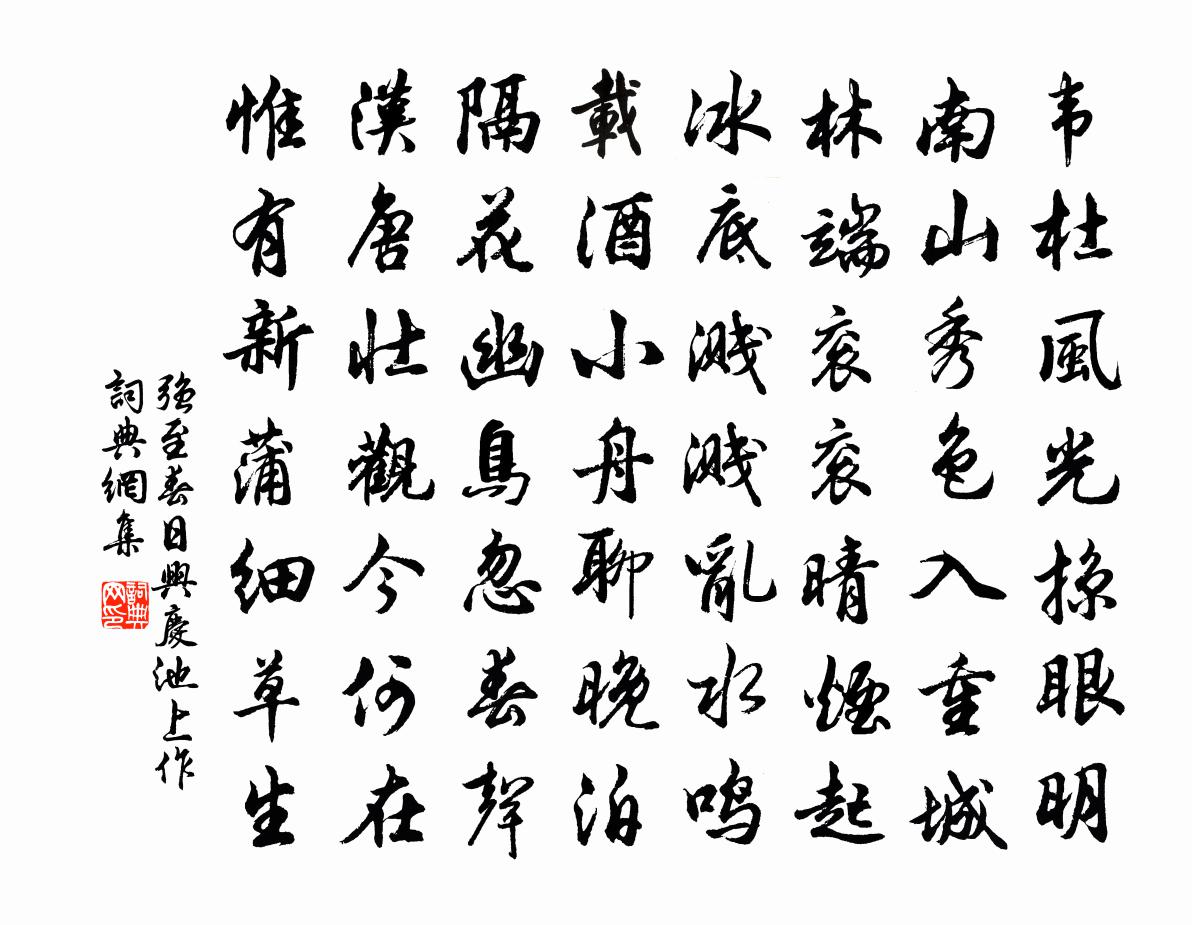 韦杜風光掠眼明
南山秀色入重城
林端衮衮晴煙起
冰底溅溅亂水鸣
載酒小舟聊晚泊
隔花幽鳥忽春聲
漢唐壮觀今何在
惟有新蒲细草生
强至春日興慶池上作
詞典網集
詞典网印